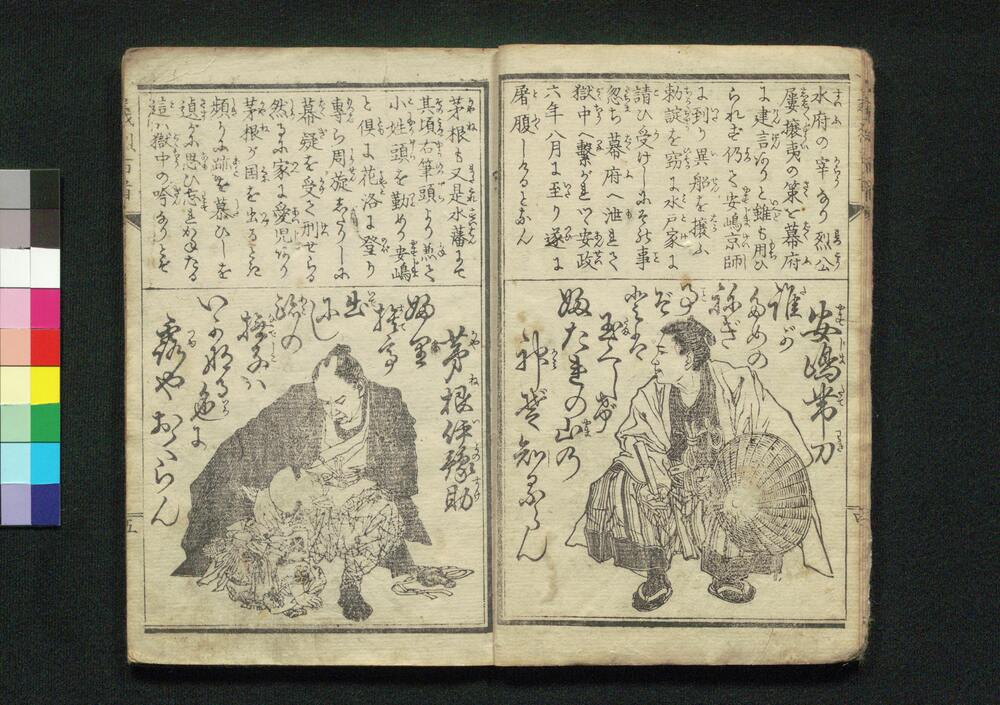 水府の宰なり烈公
屢攘夷の策を幕府
に建言ありと雖も用ひ
られず仍て安嶋京師
に到り異船を撥ふ
勅諚を窃に水戸家に
請ひ受けしにその事
忽ち幕府へ泄れて
獄中へ繋がれつ安政
六年八月に至り遂に
屠腹しけるとなん
安嶋帯刀
誰が
ための
みそぎ
登は
玉くし笥
婦たまの山の
神ぞ知るらん
茅根も又是水藩にて
其頃右筆頭より兼て
小姓頭を勤めり安嶋
と俱に花洛に登り
専ら周旋したりしに
幕疑を受て刑せらる
然るに家に愛児あり
茅根が国を出るとき
頻りに跡を慕ひしを
這は獄中の吟なりとぞ
茅根伊豫助
婦里
捨て
出
にし
撫子は
いかなる色に
露やおくらん